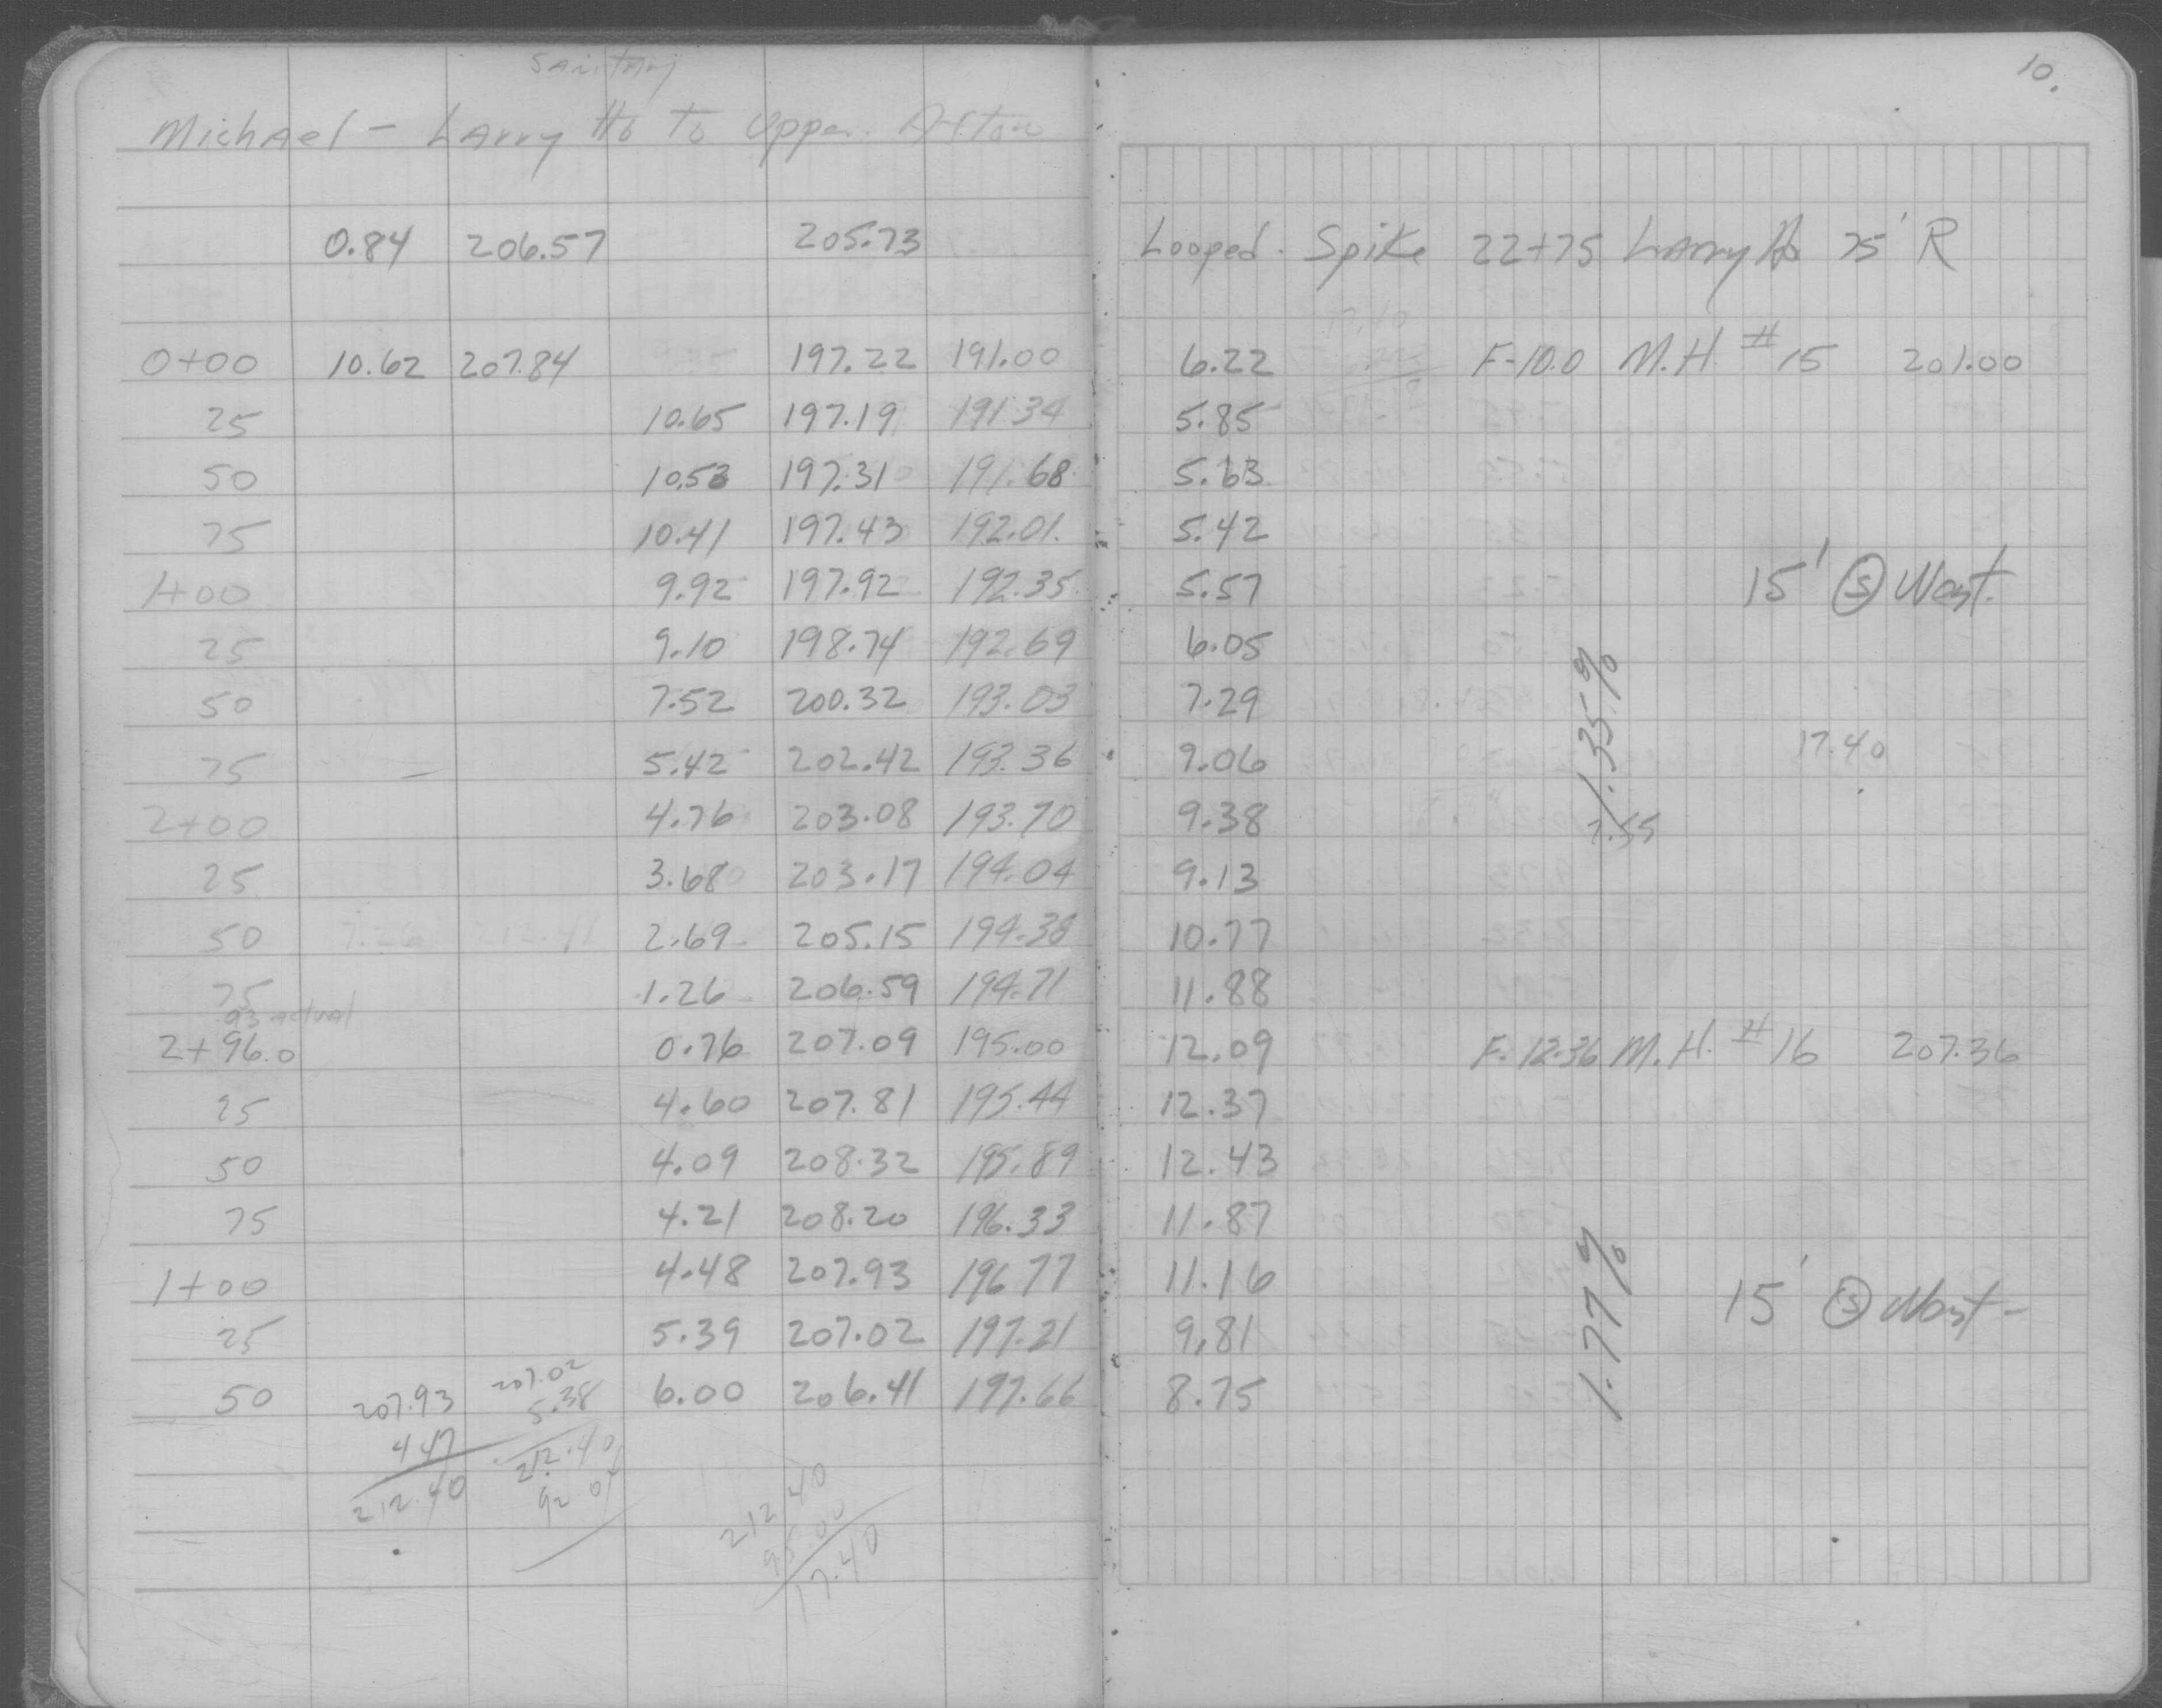 Sanitary
Michael - Larry Ho to Upper Afton
10.
0.84 206.57 205.73 Looped Spike 22+75 Larry Ho 75' R
0+00 10.62 207.84 197.22 191.00 6.22 F-10.0 M.H. # 15 201.00
25 10.65 197.19 191.34 5.85
50 10.53 197.31 191.68 5.63
75 10.41 197.43 192.01 5.42
1+00 9.92 197.92 192.35 5.57 15' Ⓢ West.
25 9.10 198.74 192.69 6.05
50 7.52 200.32 193.03 7.29
1.35%
75 5.42 202.42 193.36 9.06 17.40
2+00 4.76 203.08 193.70 9.38
25 3.68 203.17 194.04 9.13
50 7.26 212.41 2.69 205.15 194.38 10.77
75 1.26 206.59 194.71 11.88
93 actual
2+96.0 0.76 207.09 195.00 12.09 F. 12.36 M.H. # 16 207.36
25 4.60 207.81 195.44 12.37
50 4.09 208.32 195.89 12.43
75 4.21 208.20 196.33 11.87
1+00 4.48 207.93 196.77 11.16 15' Ⓢ West-
1.77%
25 5.39 207.02 197.21 9.81
50 6.00 206.41 197.66 8.75
207.93 207.02
4.47 5.38
212.40 212.40
212.40
95.00
17.40